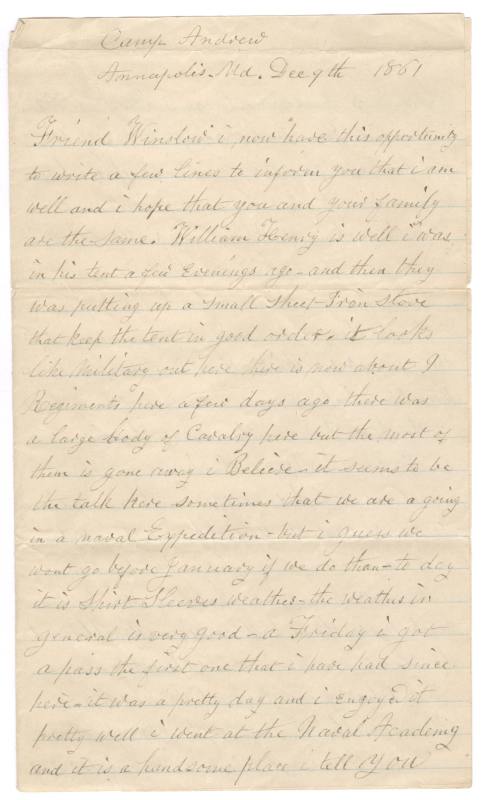 Camp Andrew
Annapolis. Md. Dec 9th 1861
Friend Winslow i now have this opportunity
to write a few lines to inform you that i am
well and i hope that you and your family
are the same. William Henry is well i was
in his tent a few Evenings ago - and then they
was putting up a small Sheet Iron Stove
that keep the tent in good order. it looks
like Military out here there is now about 9
Regiments here a few days ago there was
a large body of Cavalry here but the most of
them is gone away i Believe - it seems to be
the talk here sometimes that we are a going
in a naval Expedition - but i guess we
wont go before January if we do than - to day
it is Shirt Sleeves weather - the weather in
general is very good - a Friday i got
a pass the first one that i have had since
here - it was a pretty day and i Engoyed it
pretty well i went at the Naval Academy
and it is a handsome place i tell you